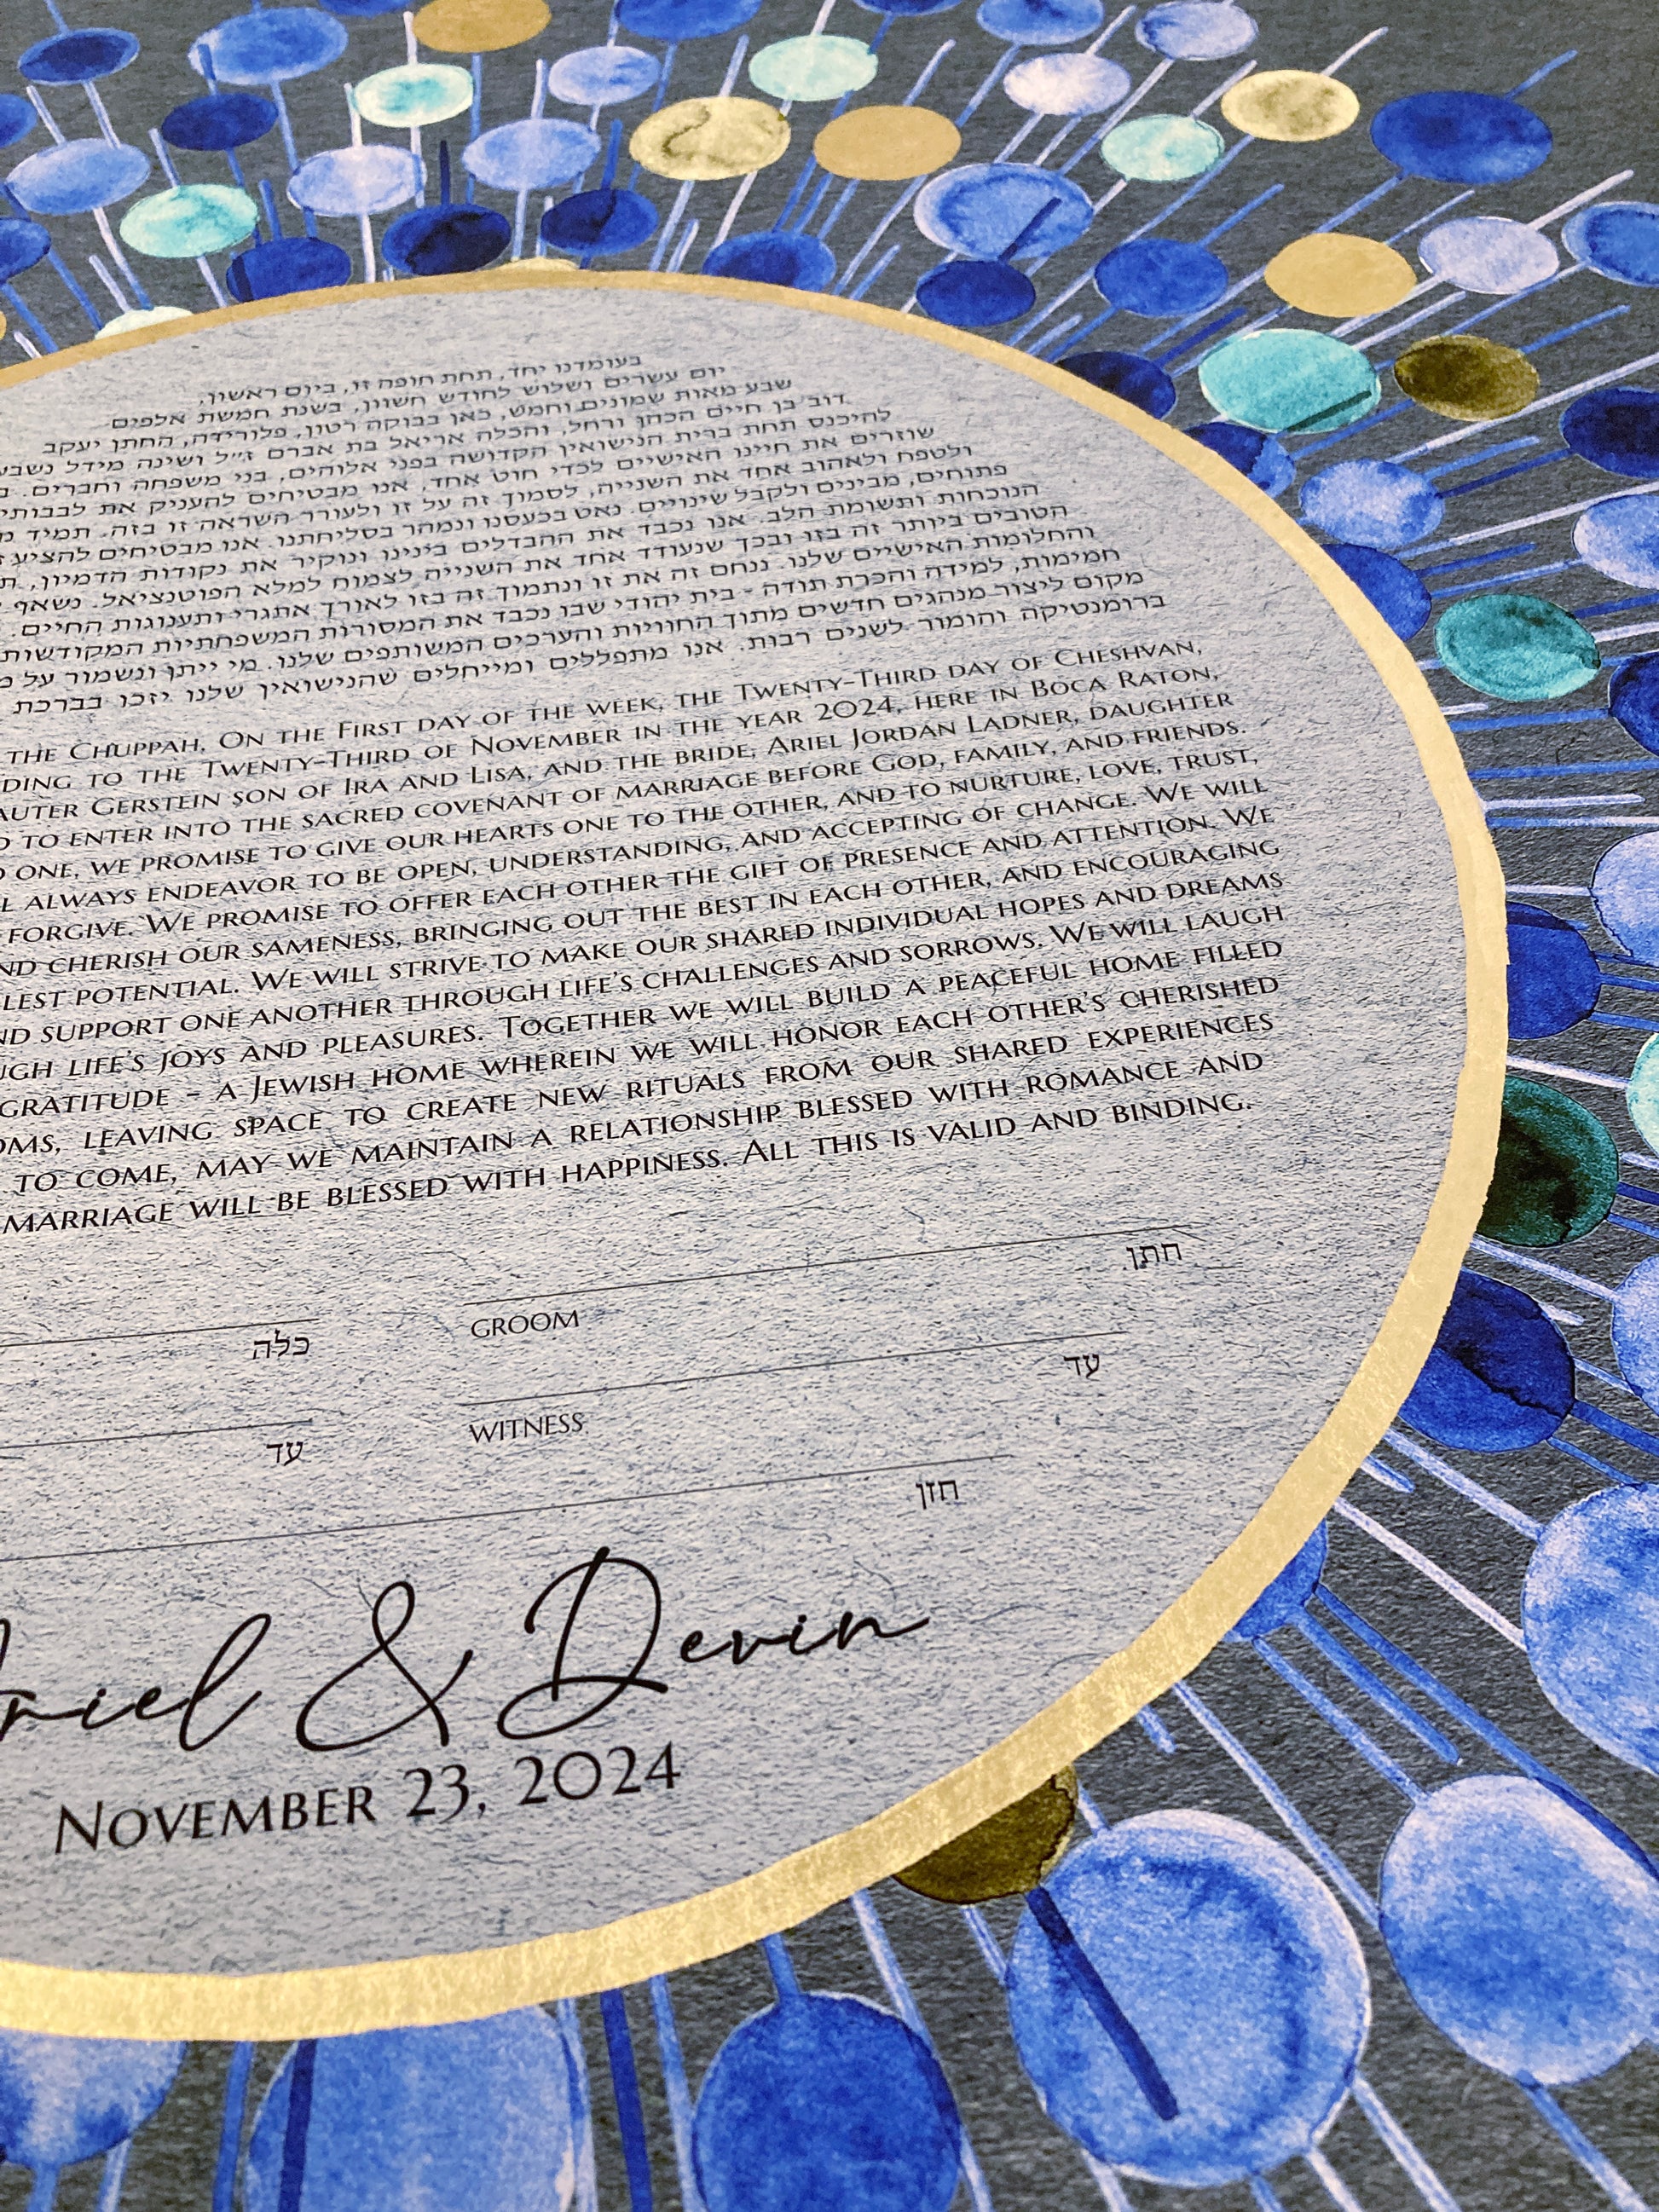 בעומדנו יחד, תחת חופה זו, ביום ראשון,
יום עשרים ושלוש לחודש חשוון, בשנת חמשת אלפים
שבע מאות שמונים וחמש, כאן בבוקה רטון, פלורידה, החתן יעקב
דוב בן חיים הכהן ורחל, והכלה אריאל בת אברם ז״ל ושינה מידל
להיכנס תחת ברית הנישואין הקדושה בפני אלוהים, בני משפחה וחברים.
שוזרים את חיינו האישיים לכדי חוט אחד, אנו מבטיחים להעניק את
ולטפח ולאהוב אחד את השנייה, לסמוך זה על זו ולעורר השראה זו בזה. תמיד
פתוחים, מבינים ולקבל שינויים. נאט בכעסנו ונמהר בסליחתנו. אנו מבטיחים להציע
הנוכחות ותשומת הלב. אנו נכבד את ההבדלים בינינו ונוקיר את נקודות הדמיון,
הטובים ביותר זה בזו ובכך שנעודד אחד את השנייה לצמוח למלא הפוטנציאל. נשאף
והחלומות האישיים שלנו. ננחם זה את זו ונתמוך זה בזו לאורך אתגרי ותענוגות החיים.
חמימות, למידה והכרת תודה - בית יהודי שבו נכבד את המסורות המשפחתיות המקודשות
מקום ליצור מנהגים חדשים מתוך החוויות והערכים המשותפים שלנו. מי ייתן ונשמור על
ברומנטיקה והומור לשנים רבות. אנו מתפללים ומייחלים שהנישואין שלנו יזכו בברכת
the Chuppah, On the First day of the week, the Twenty-Third day of Cheshvan,
to the Twenty-Third of November in the year 2024, here in Boca Raton,
Gerstein son of Ira and Lisa, and the bride, Ariel Jordan Ladner, daughter
to enter into the sacred covenant of marriage before God, family, and friends.
one, we promise to give our hearts one to the other, and to nurture, love, trust,
always endeavor to be open, understanding, and accepting of change. We will
forgive. We promise to offer each other the gift of presence and attention. We
cherish our sameness, bringing out the best in each other, and encouraging
potential. We will strive to make our shared individual hopes and dreams
support one another through life's challenges and sorrows. We will laugh
life's joys and pleasures. Together we will build a peaceful home filled
gratitude - a Jewish home wherein we will honor each other's cherished
leaving space to create new rituals from our shared experiences
to come, may we maintain a relationship blessed with romance and
marriage will be blessed with happiness. All this is valid and binding.
כלה חתן
groom
עד עד
witness
חזן
& Devin
November 23, 2024